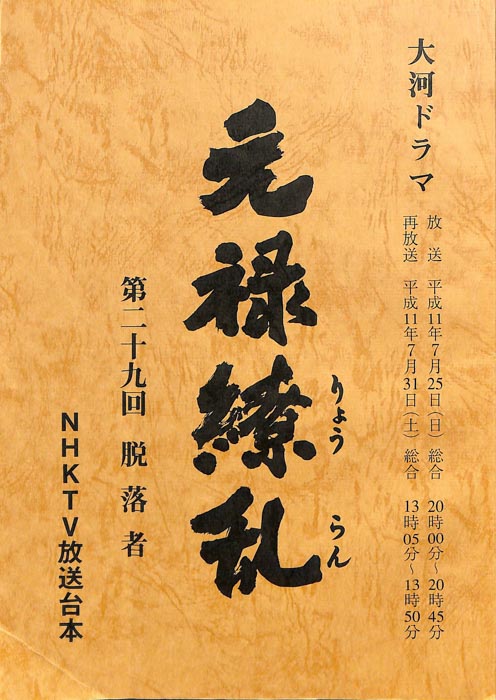 大河ドラマ
放送 平成11年7月25日(日) 総合 20時00分~20時45分
再放送 平成11年7月31日(土) 総合 13時05分~13時50分
元禄繚乱
りょう らん
第二十九回 脱落者
NHKTV放送台本